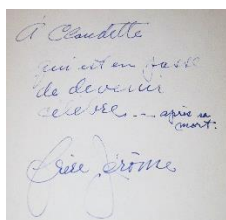 À Claudette
qui est en passe
de devenir
celebre... après sa
mort.
Jérôme